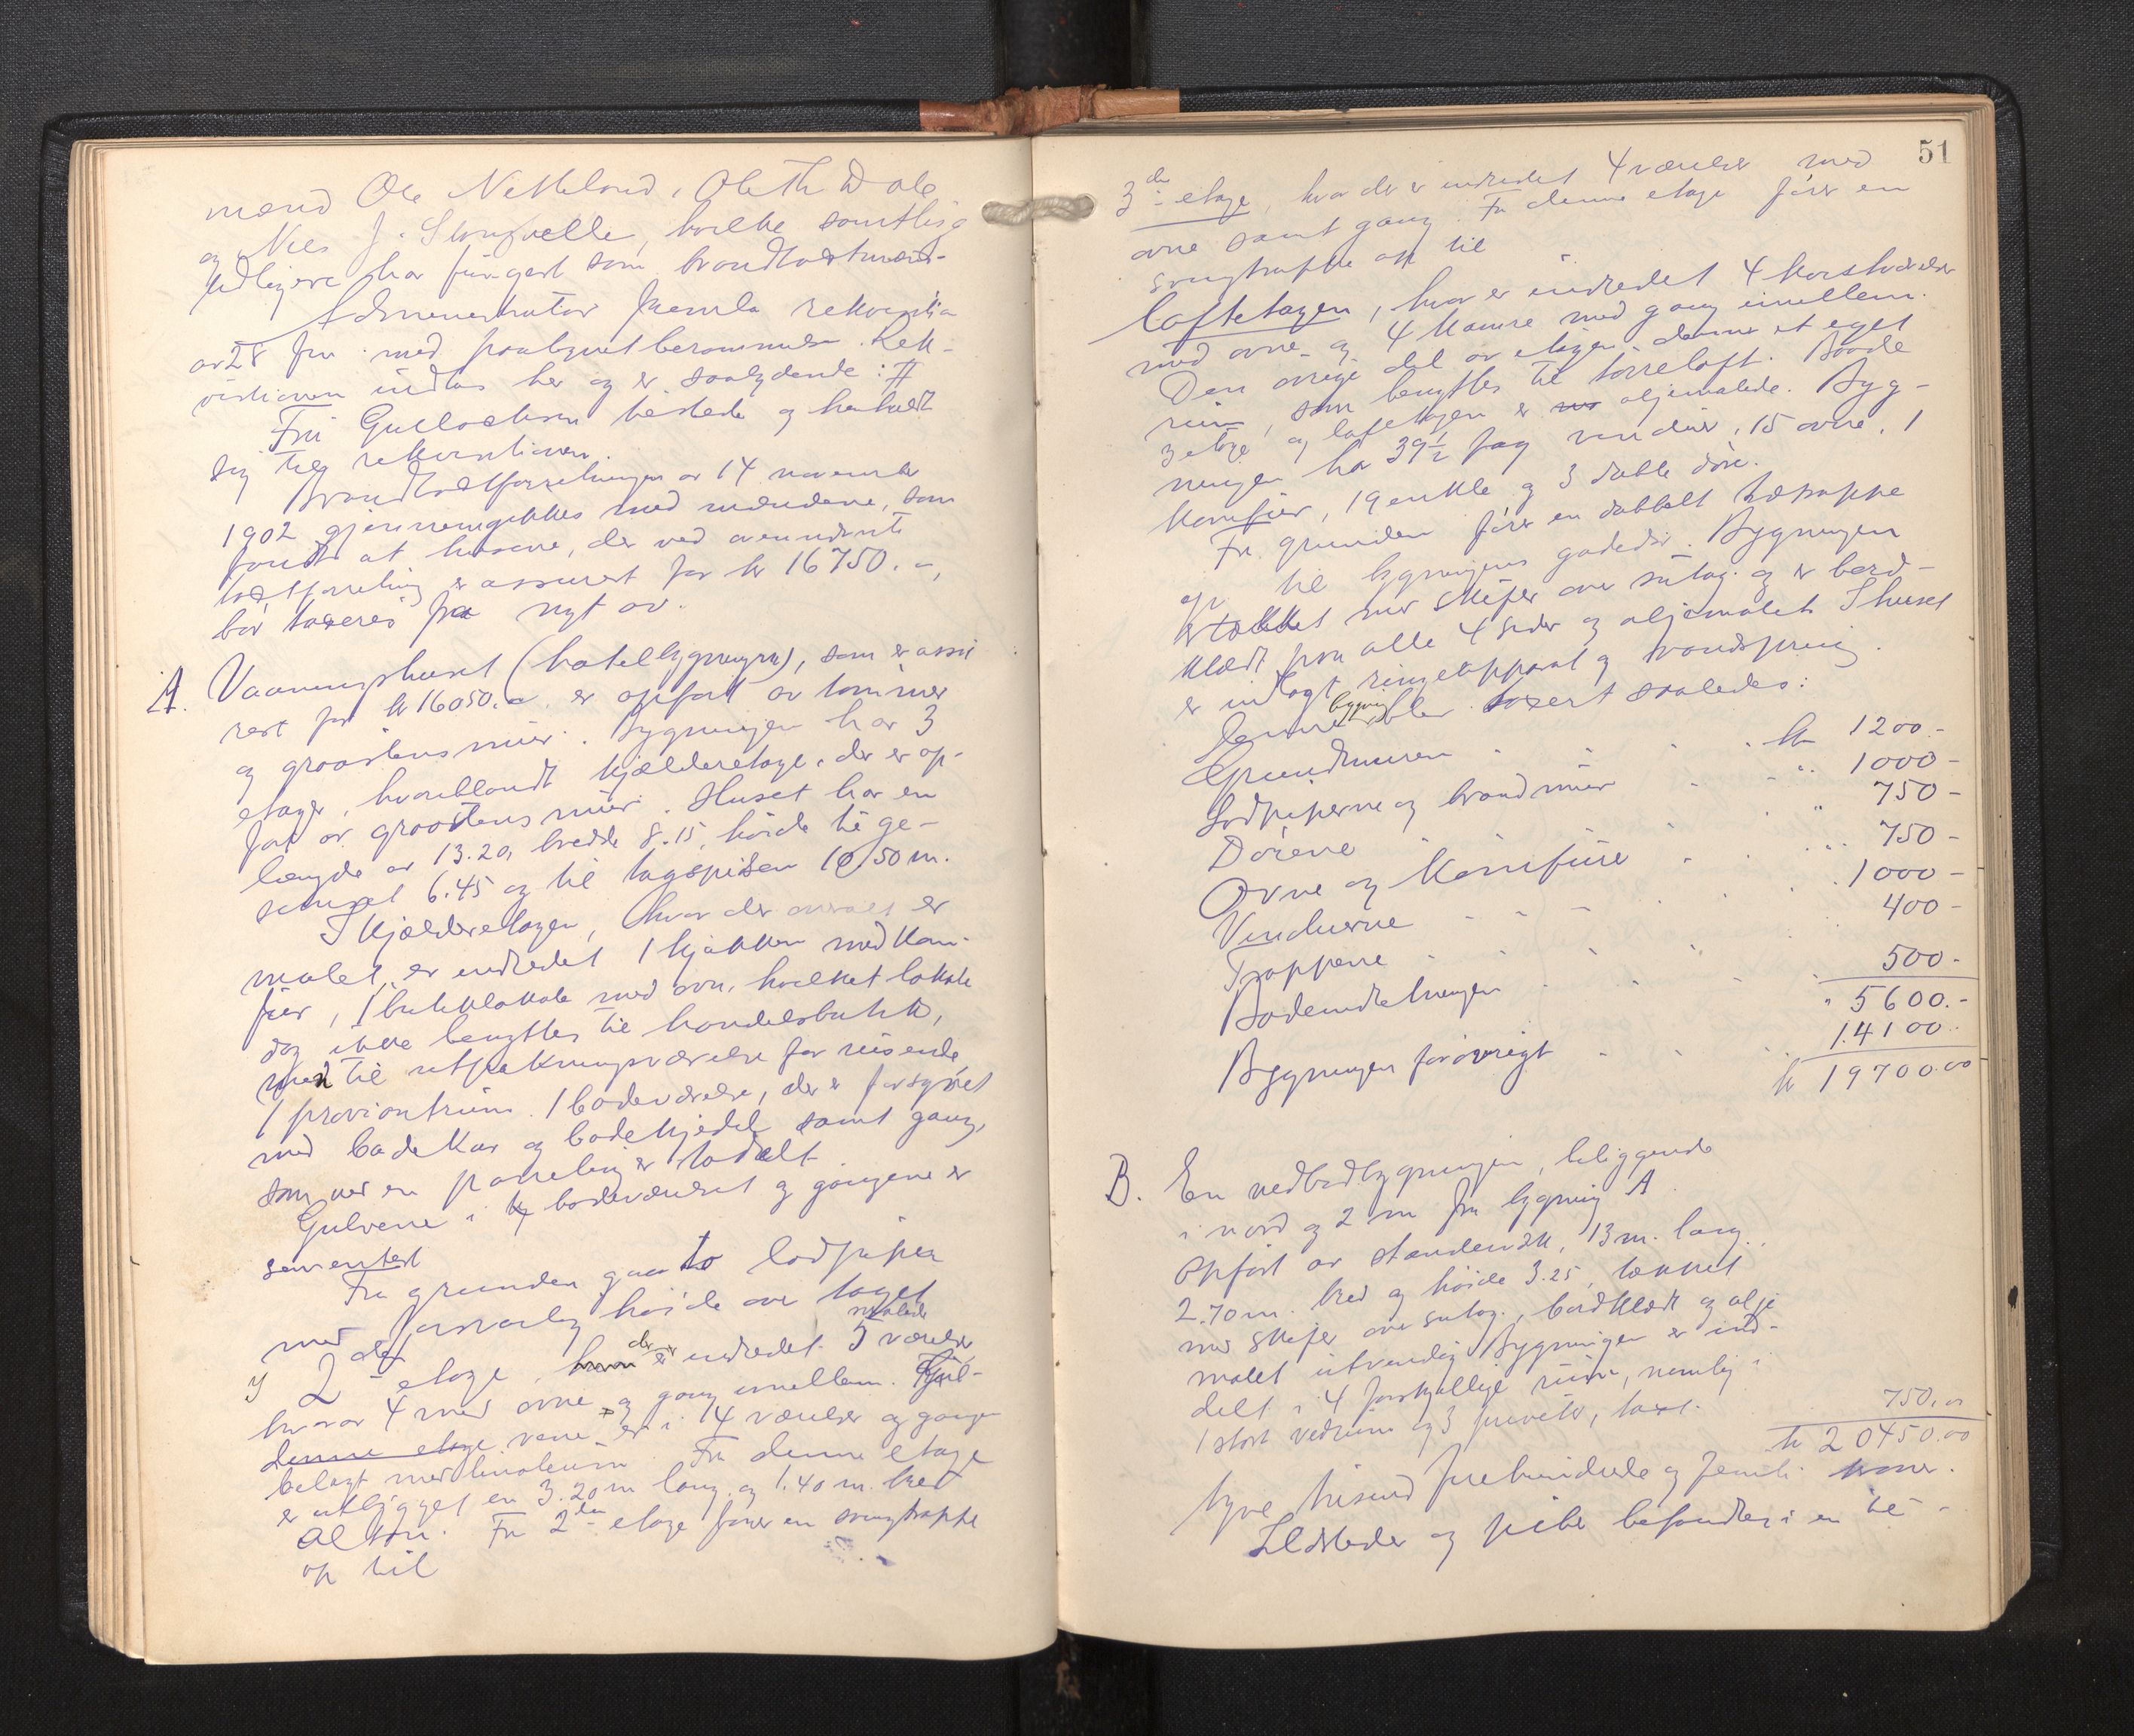 mænd Ole Netteland, Ole Th Dale
og Nils J. , hvilke samtlige
tidligere har fungert som brandtakstmænd.
Administrator fremla rekvisition
av 28 fm. med paategnet berammelse. Rek-
visitionen indtas her og er saalydende: #
Fru Gullachsen tilstede og henholdt
sig til rekvisitionen.
Brandtakstforretningen av 14 november
1902 gjennemgikkes med mændene, som
fandt at husene, der ved omnævnte
takstforretning er assurert for kr 16750.-,
bør takseres paa nyt av.
A. Vaaningshuset (hotelbygningen), som er assu
rert for kr 16050.- er opført av tømmer
og graastensmur. Bygningen har 3
etager, hvoriblandt kjælderetage, der er op-
ført av graastens mur. Huset har en
længde av 13.20, bredde 8.15, høide til ge-
simset 6.45 og til tagspidsen 10.50 m.
I kjælderetagen, hvor der overalt er
malet, er indredet 1 kjøkken med kom-
fur, 1 butiklokale med ovn, hvilket lokale
dog ikke benyttes til handelsbutik,
men til utpakningsværelse for reisende
1 proviantrum. 1 badeværelse, der er forsynet
med badekar og badekjedel samt gang,
som ved en paneling er todelt
Gulvene i badeværelset og gangene er
sementert
Fra grunden gaar to lodpiper
med forsvarlig høide over taget
I 2den etage, der er indredet 5 malede værelser
hvorav 4 med ovne og gang imellem. Gul-
denne etage vene er i 4 værelser og gangen
belagt med linoleum. Fra denne etage
er utbygget en 3.20 m lang og 1.40 m. bred
altan. Fra 2den etage fører en svingtrappe
op til
51
3de etage, hvor der er indredet 4 værelser med
ovne samt gang. Fra denne etage fører en
svingtrappe op til
loftetagen, hvor er indredet 4 kvistværelser
med ovne og 4 kamre med gang imellem.
Den øvrige del av etagen danner et eget
rum, som benyttes til tørreloft. Baade
3 etage og loftetagen er oljemalede. Byg-
ningen har 39½ fag vinduer, 15 ovne, 1
komfur, 19 enkle og 3 doble døre.
Fra grunden fører en dobbelt trætrappe
op til bygningens gadedør. Bygningen
er tækket med skifer over sutag. og er bord-
klædt paa alle 4 sider og oljemalet. I huset
er indlagt ringeapparat og vandspring.
Denne bygning blev taxert saaledes:
Grundmuren kr 1200.-
Lodpiperne og brandmur " 1000-
Dørene " 750-
Ovne og Komfure " 750-
Vinduerne 1000-
Trapperne 400-
Badeindretningen 500-
" 5600.-
Bygningen forøvrigt 14100.-
kr 19700.00
B. En vedbodbygningen, beliggende
i nord og 2 m fra bygning A
Opført av stenderverk, 13 m. lang,
2.70 m. bred og høide 3.25, tækket
med skifer over sutag., bordklædt og olje
malet utvendig Bygningen er ind-
delt i 4 forskjellige rum, nemlig i
1 stort vedrum og 3 priveter, taxt. 750.00
kr 20450.00
tyve tusind firehundrede og femti kroner.
Ildsteder og piber befandtes i en til-